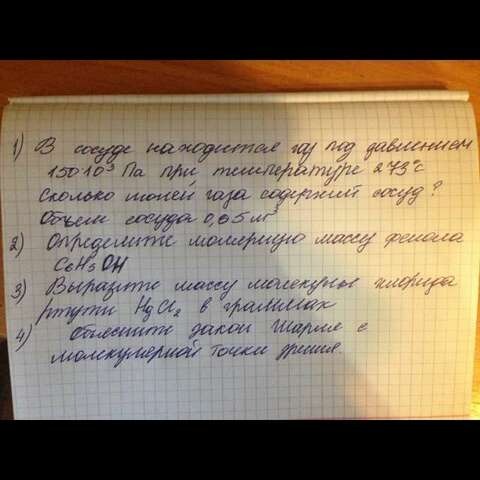 1) В сосуде находится газ под давлением
150·10³ Па при температуре 273°C
Сколько молей газа содержит сосуд?
Объем сосуда 0,65 м³
2) Определите молярную массу фенола
C6H5OH
3) Выразите массу молекулы хлорида
ртути HgCl2 в граммах
4) Объясните закон Шарля с
молекулярной точки зрения.